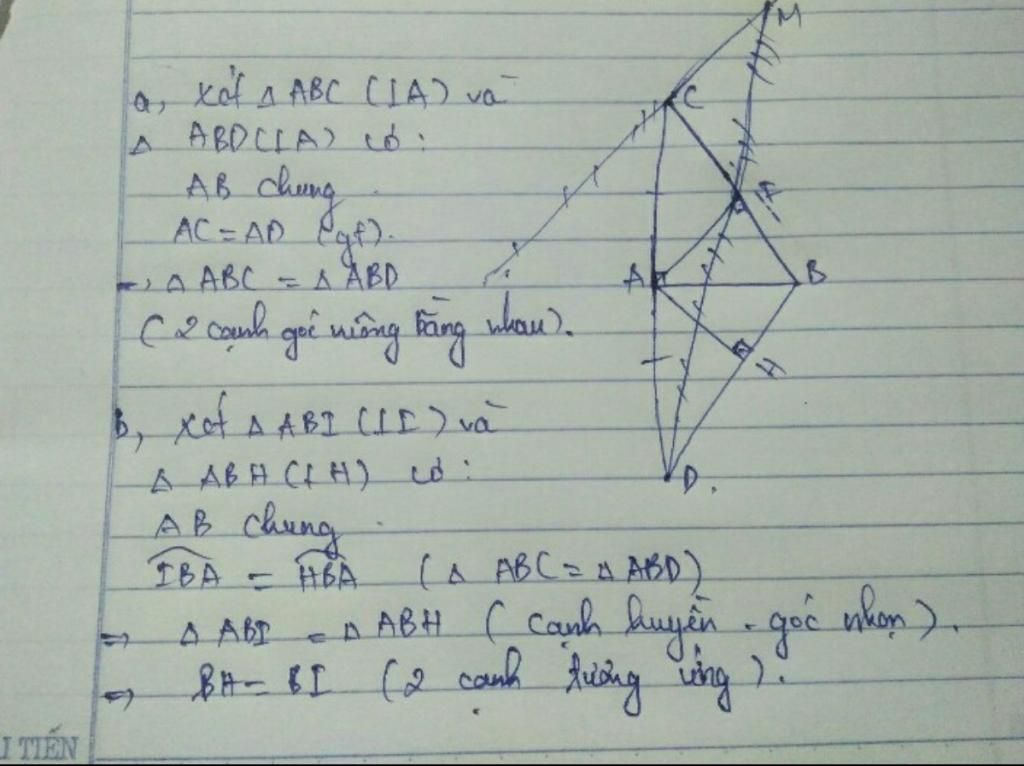 a, Xét Δ ABC (⊥A) và
Δ ABD(⊥A) có:
AB chung
AC = AD (gt).
→ Δ ABC = Δ ABD
(2 cạnh góc vuông bằng nhau).
b, Xét Δ ABI (⊥I) và
Δ ABH (⊥H) có:
AB chung
IBA = HBA (Δ ABC = Δ ABD)
⇒ Δ ABI = Δ ABH (cạnh huyền - góc nhọn).
⇒ BH = BI (2 cạnh tương ứng).
M
C
A
B
H
D.
I TIẾN